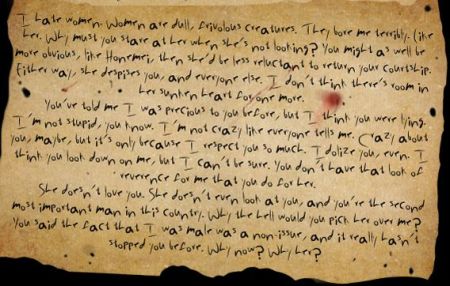 I hate women. Women are dull, frivolous creatures. They bore me terribly. (like
her. Why must you stare at her when she's not looking? You might as well be
more obvious, like Honemei, then she'd be less reluctant to return your courtship.
Either way, she despises you, and everyone else. I don't think there's room in
her sunken heart for one more.
You've told me I was precious to you before, but I think you were lying.
I'm not stupid, you know. I'm not crazy like everyone tells me. Crazy about
you, maybe, but it's only because I respect you so much. I dolize you, even. I
think you look down on me, but I can't be sure. You don't have that look of
reverence for me that you do for her.
She doesn't love you. She doesn't even look at you, and you're the second
most important man in this country. Why the hell would you pick her over me?
You said the fact that I was male was a non-issue, and it really hasn't
stopped you before. Why now? Why her?